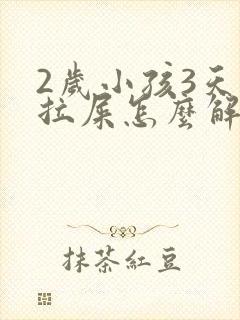 2歲小孩3天
拉屎怎麼解
抹茶紅豆